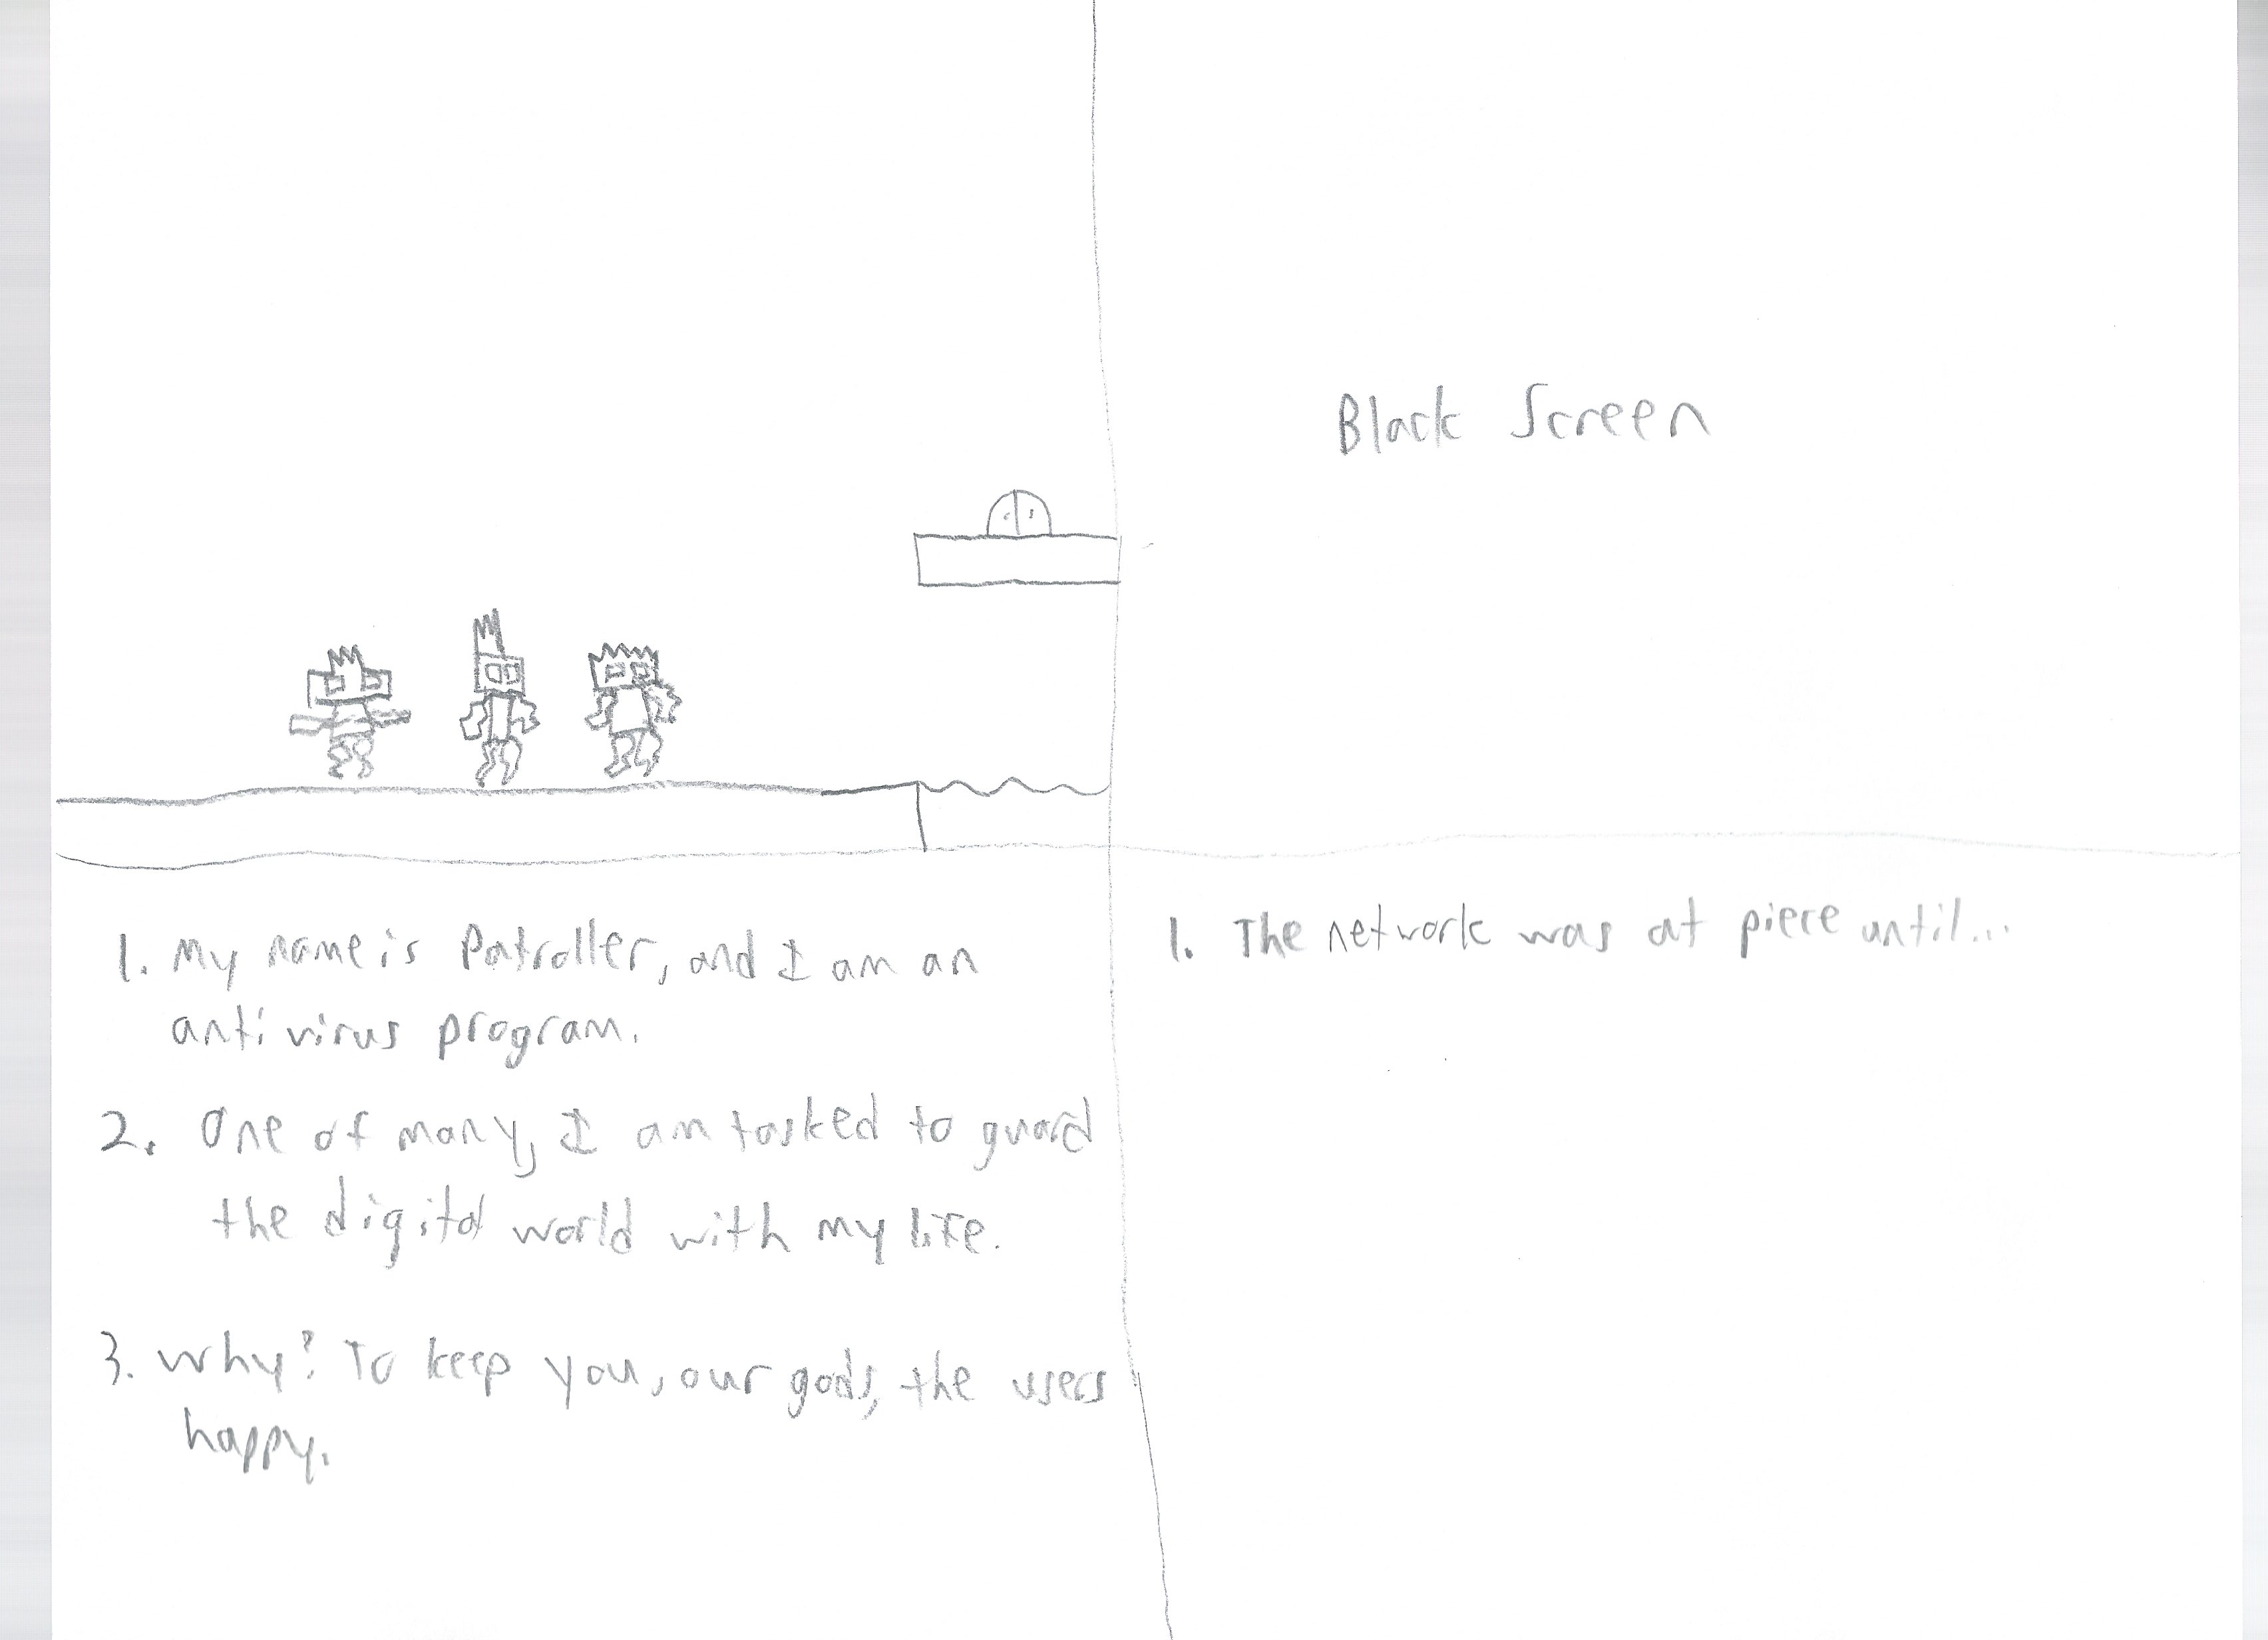 Black Screen
1. My name is Patroller, and I am an
antivirus program.
2. One of many, I am tasked to guard
the digital world with my life.
3. Why? To keep you, our gods, the users
happy.
1. The network was at piece until...